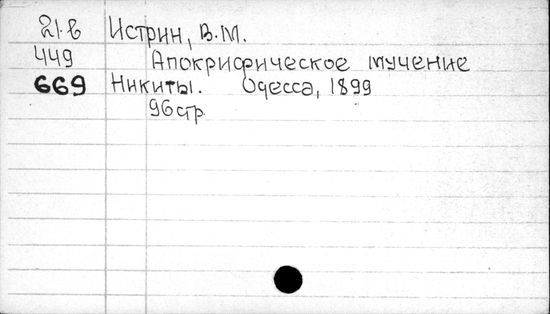 21.в Истрин, В.М.
449 Апокрифическое мучение
669 Никиты. Одесса, 1899
96стр.